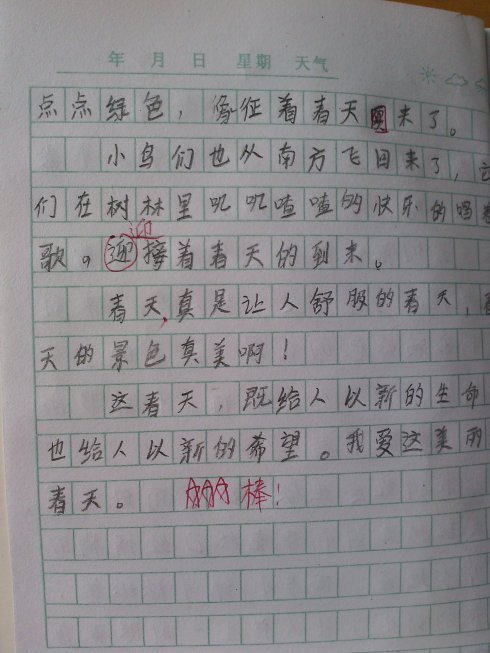 年 月 日 星期 天气
点点绿色，象征着春天回来了。
小鸟们也从南方飞回来了，它
们在树林里叽叽喳喳的快乐的唱着
迎
歌。迎接着春天的到来。
春天，真是让人舒服的春天，春
天的景色真美啊！
这春天，既给人以新的生命
也给人以新的希望。我爱这美丽
春天。 棒！